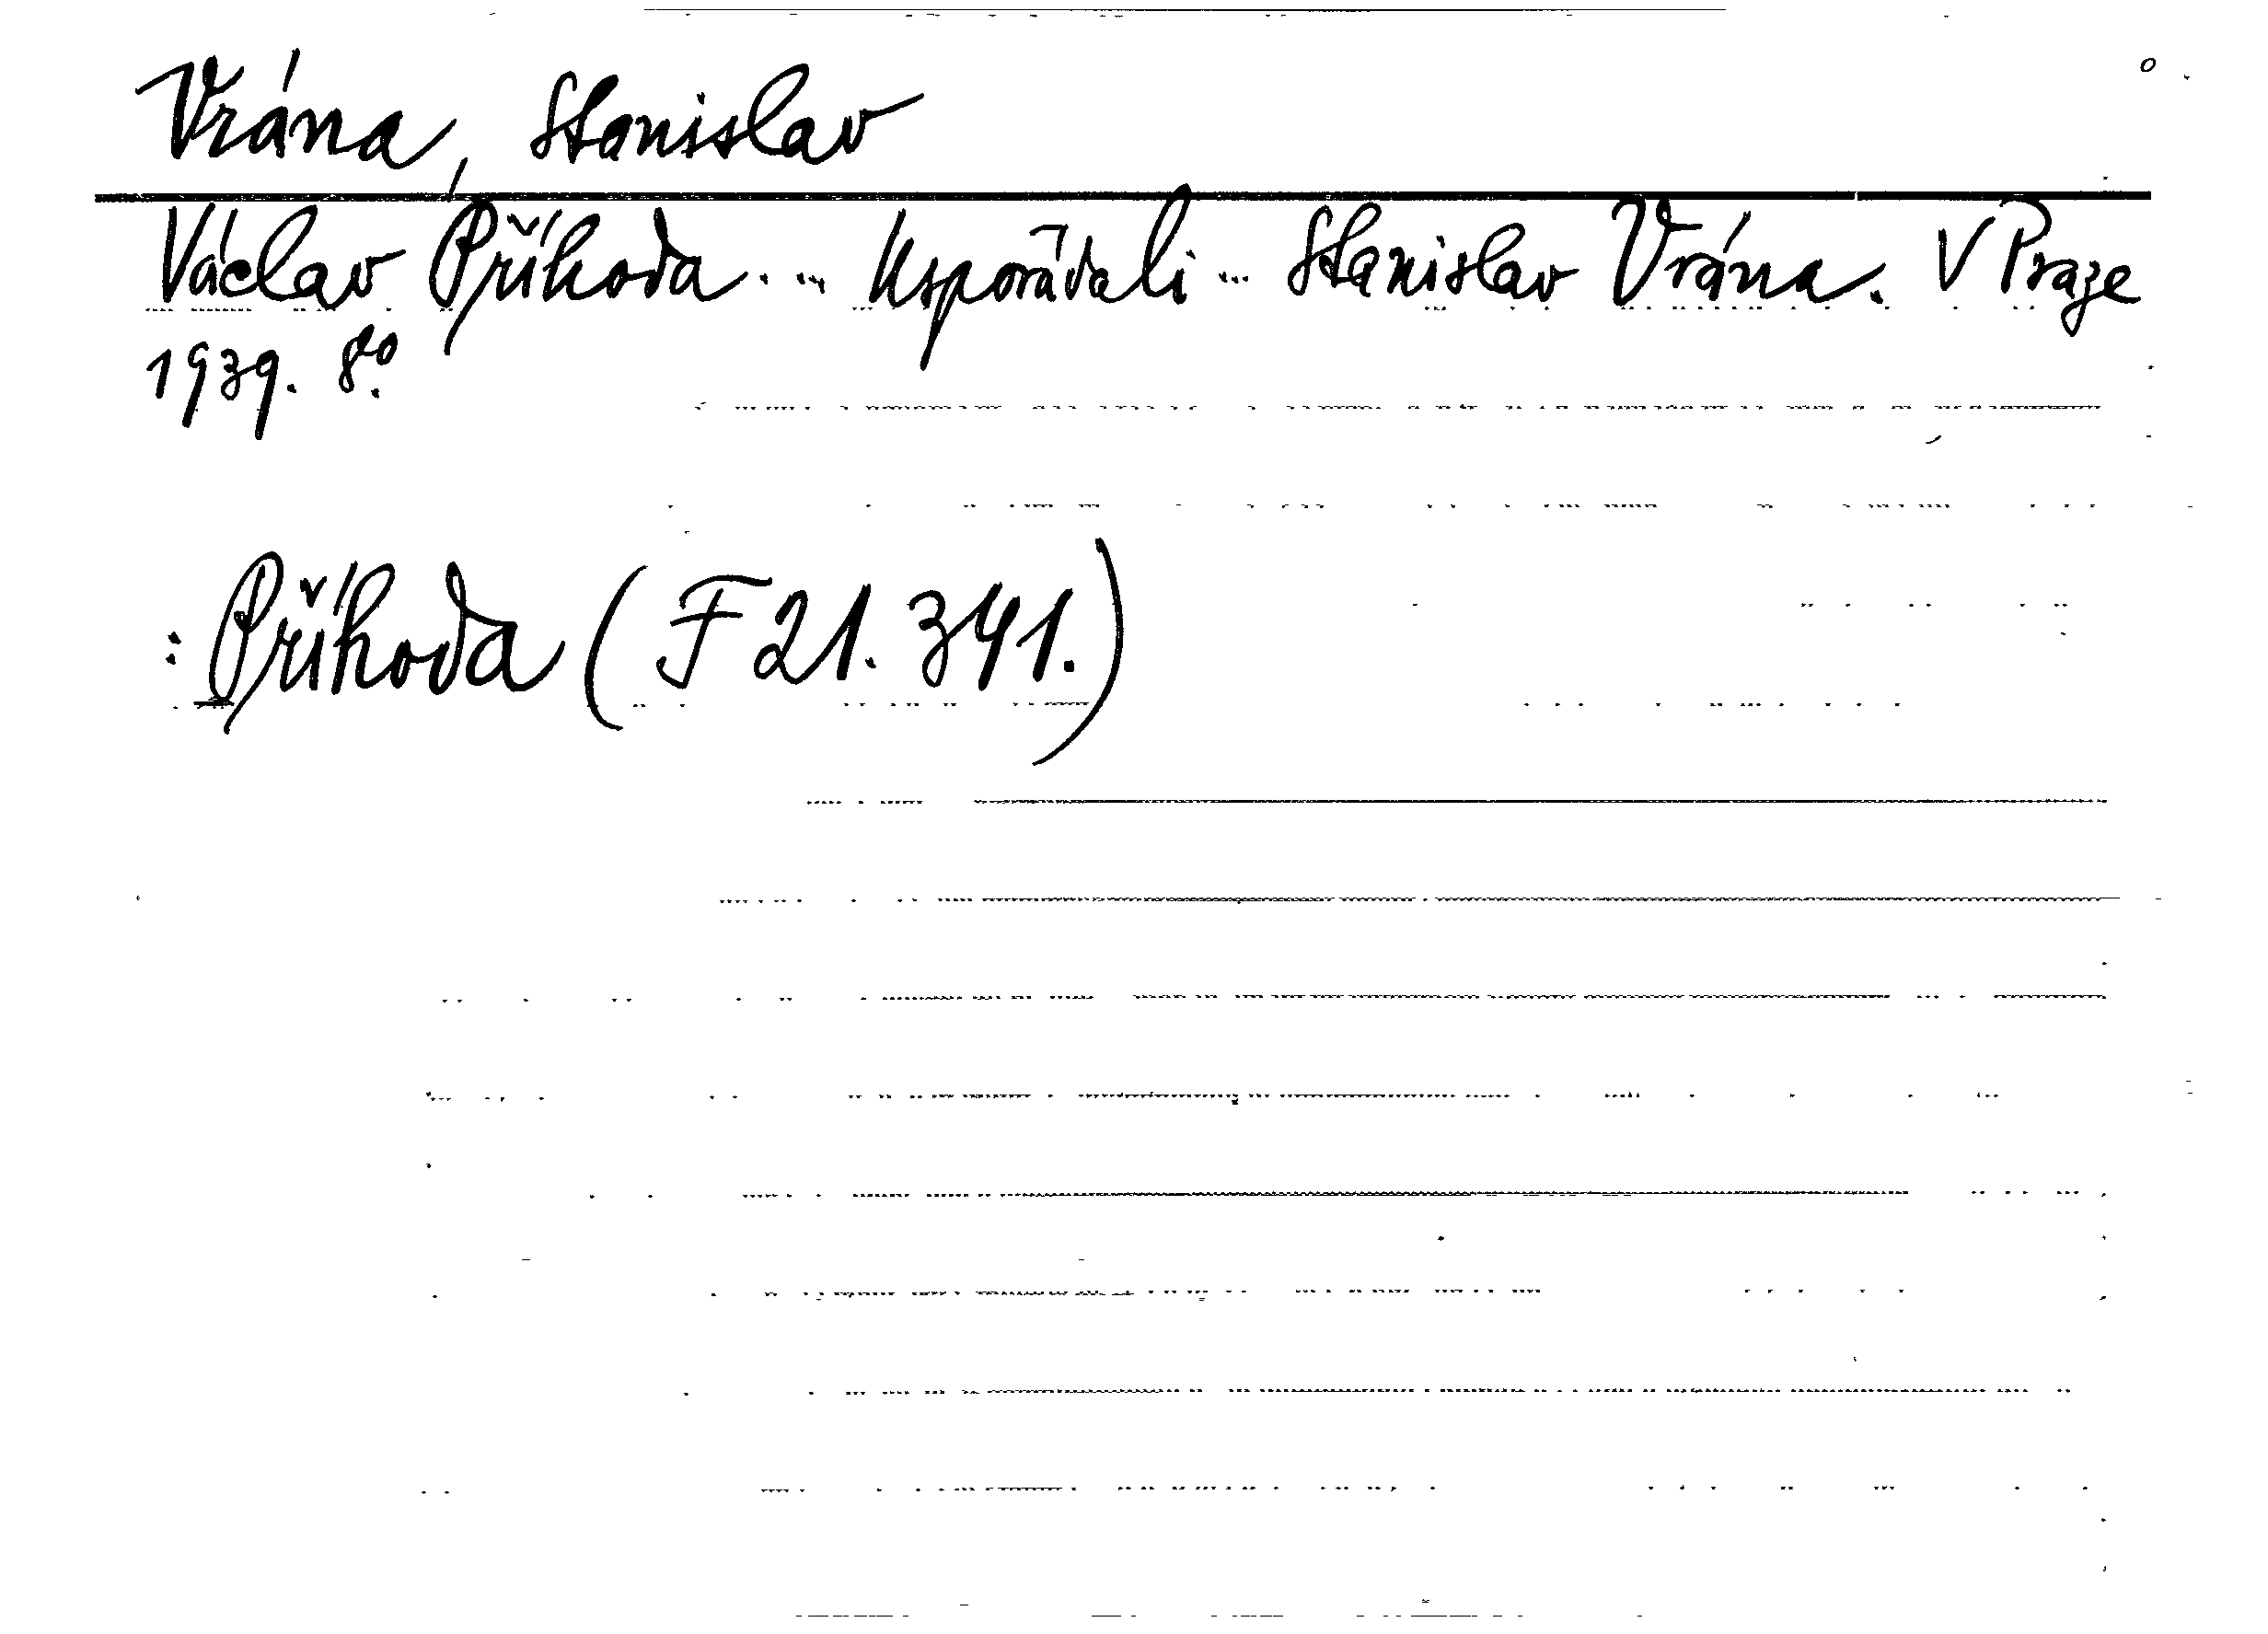 Vrána, Stanislav
Václav Příhoda ... Uspořádali ... Stanislav Vrána. V Praze
1939. 8°.
: Příhoda (F 21.341.)